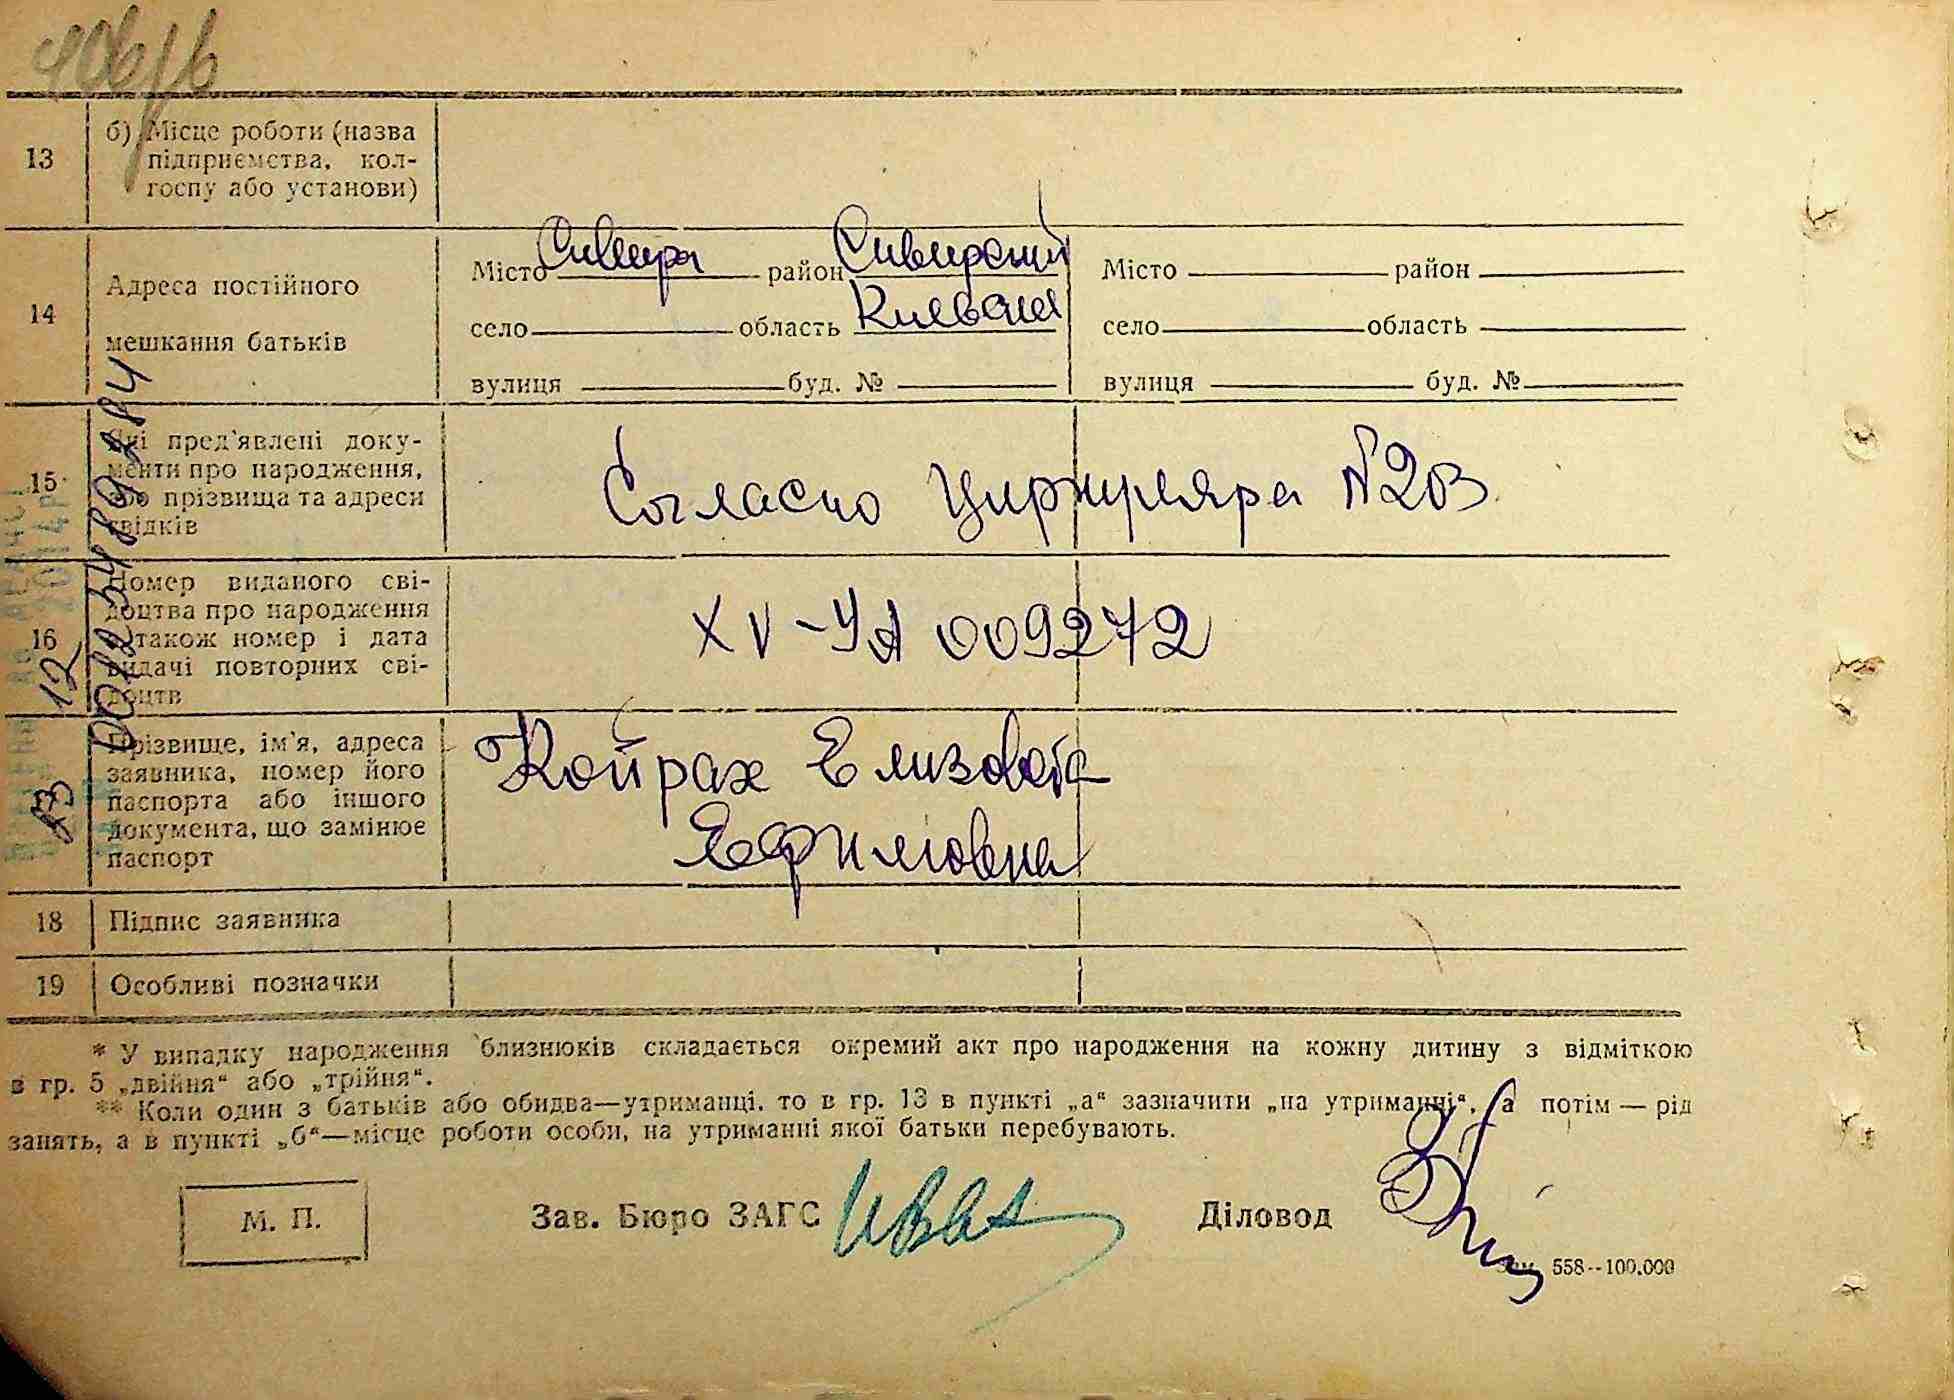 13
б) Місце роботи (назва
підприємства, кол-
госпу або установи)
14
Адреса постійного
мешкання батьків
Місто Сквира район Сквирский
село область Киевская
вулиця буд. №
Місто район
село область
вулиця буд. №
15
Які пред'явлені доку-
менти про народження,
або прізвища та адреси
свідків
Согласно Циркуляра N 203
16
Номер виданого сві-
доцтва про народження
а також номер і дата
видачі повторних сві-
доцтв
XV-УА 009272
Прізвище, ім'я, адреса
заявника, номер його
паспорта або іншого
документа, що замінює
паспорт
Койрах Елизовета
Ефимовна
18 Підпис заявника
19 Особливі позначки
* У випадку народження близнюків складається окремий акт про народження на кожну дитину з відміткою
в гр. 5 „двійня“ або „трійня“.
** Коли один з батьків або обидва—утриманці, то в гр. 13 в пункті „а“ зазначити „на утриманні“, а потім — рід
занять, а в пункті „б“—місце роботи особи, на утриманні якої батьки перебувають.
М. П.
Зав. Бюро ЗАГС
Діловод
558--100.000